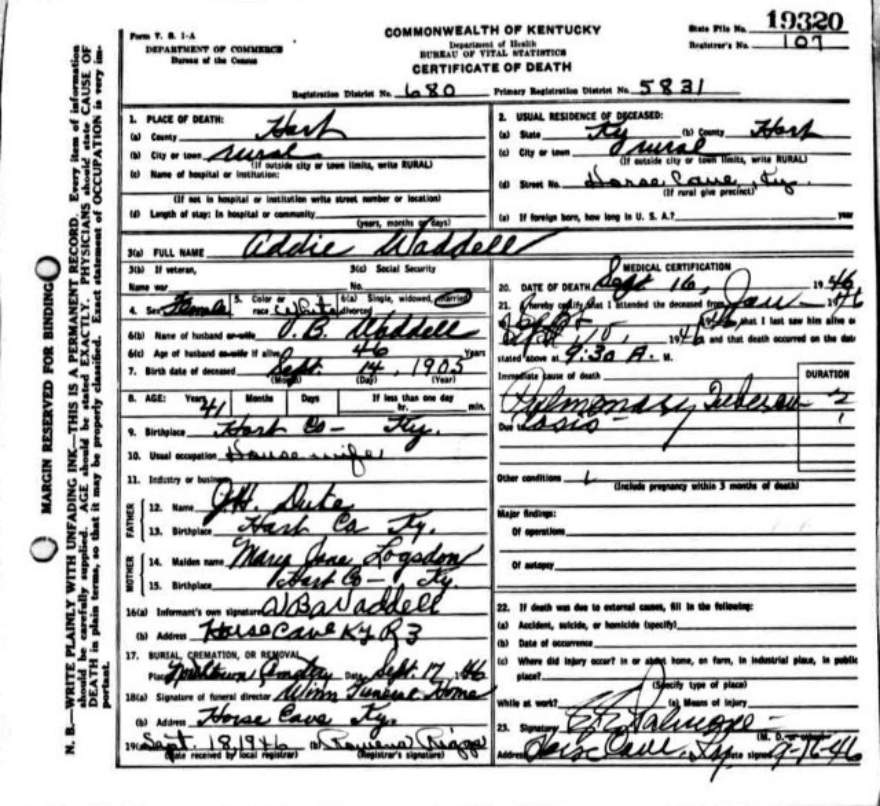 Form V. S. 1-A
DEPARTMENT OF COMMERCE
Bureau of the Census
COMMONWEALTH OF KENTUCKY
Department of Health
BUREAU OF VITAL STATISTICS
CERTIFICATE OF DEATH
State File No. 19320
Registrar's No. 107
Registration District No. 680 Primary Registration District No. 5831
MARGIN RESERVED FOR BINDING
N. B.—WRITE PLAINLY WITH UNFADING INK—THIS IS A PERMANENT RECORD. Every item of information
should be carefully supplied. AGE should be stated EXACTLY. PHYSICIANS should state CAUSE OF
DEATH in plain terms, so that it may be properly classified. Exact statement of OCCUPATION is very im-
portant.
1. PLACE OF DEATH:
(a) County Hart
(b) City or town rural
(If outside city or town limits, write RURAL)
(c) Name of hospital or institution:
(If not in hospital or institution write street number or location)
(d) Length of stay: In hospital or community
(years, months or days)
2. USUAL RESIDENCE OF DECEASED:
(a) State Ky (b) County Hart
(c) City or town rural
(If outside city or town limits, write RURAL)
(d) Street No. Horse Cave Ky.
(If rural give precinct)
(e) If foreign born, how long in U. S. A.? year
3(a) FULL NAME Addie Waddell
3(b) If veteran,
Name war
3(c) Social Security
No.
4. Sex Female 5. Color or race White 6(a) Single, widowed, married, divorced
6(b) Name of husband or wife V. B. Waddell
6(c) Age of husband or wife if alive 46 Years
7. Birth date of deceased Sept. 14, 1905
(Month) (Day) (Year)
8. AGE: Years 41 Months Days If less than one day
hr. min.
9. Birthplace Hart Co - Ky.
10. Usual occupation House wife
11. Industry or business
FATHER
12. Name J.H. Duke
13. Birthplace Hart Co Ky.
MOTHER
14. Maiden name Mary Jane Logsdon
15. Birthplace Hart Co - Ky.
16(a) Informant's own signature V B Waddell
(b) Address Horse Cave Ky R 3
17. BURIAL, CREMATION, OR REMOVAL
Place Cemetery Date Sept. 17, 1946
18(a) Signature of funeral director Winn Funeral Home
(b) Address Horse Cave Ky.
19(a) Sept. 18, 1946 (b) Rowena
(Date received by local registrar) (Registrar's signature)
MEDICAL CERTIFICATION
20. DATE OF DEATH Sept 16, 1946
21. I hereby certify that I attended the deceased from Jan - 1946
to Sept 1946, that I last saw him alive on
Sept 1946 and that death occurred on the date
stated above at 9:30 A. M.
Immediate cause of death
DURATION
Pulmonary Tubercu- 2
Due to losis -
Other conditions
(Include pregnancy within 3 months of death)
Major findings:
Of operations
Of autopsy
22. If death was due to external causes, fill in the following:
(a) Accident, suicide, or homicide (specify)
(b) Date of occurrence
(c) Where did injury occur? In or about home, on farm, in industrial place, in public
place?
(Specify type of place)
While at work? (e) Means of injury
23. Signature Palmore
(M. D. or other)
Address Horse Cave, Ky. Date signed 9-16-46